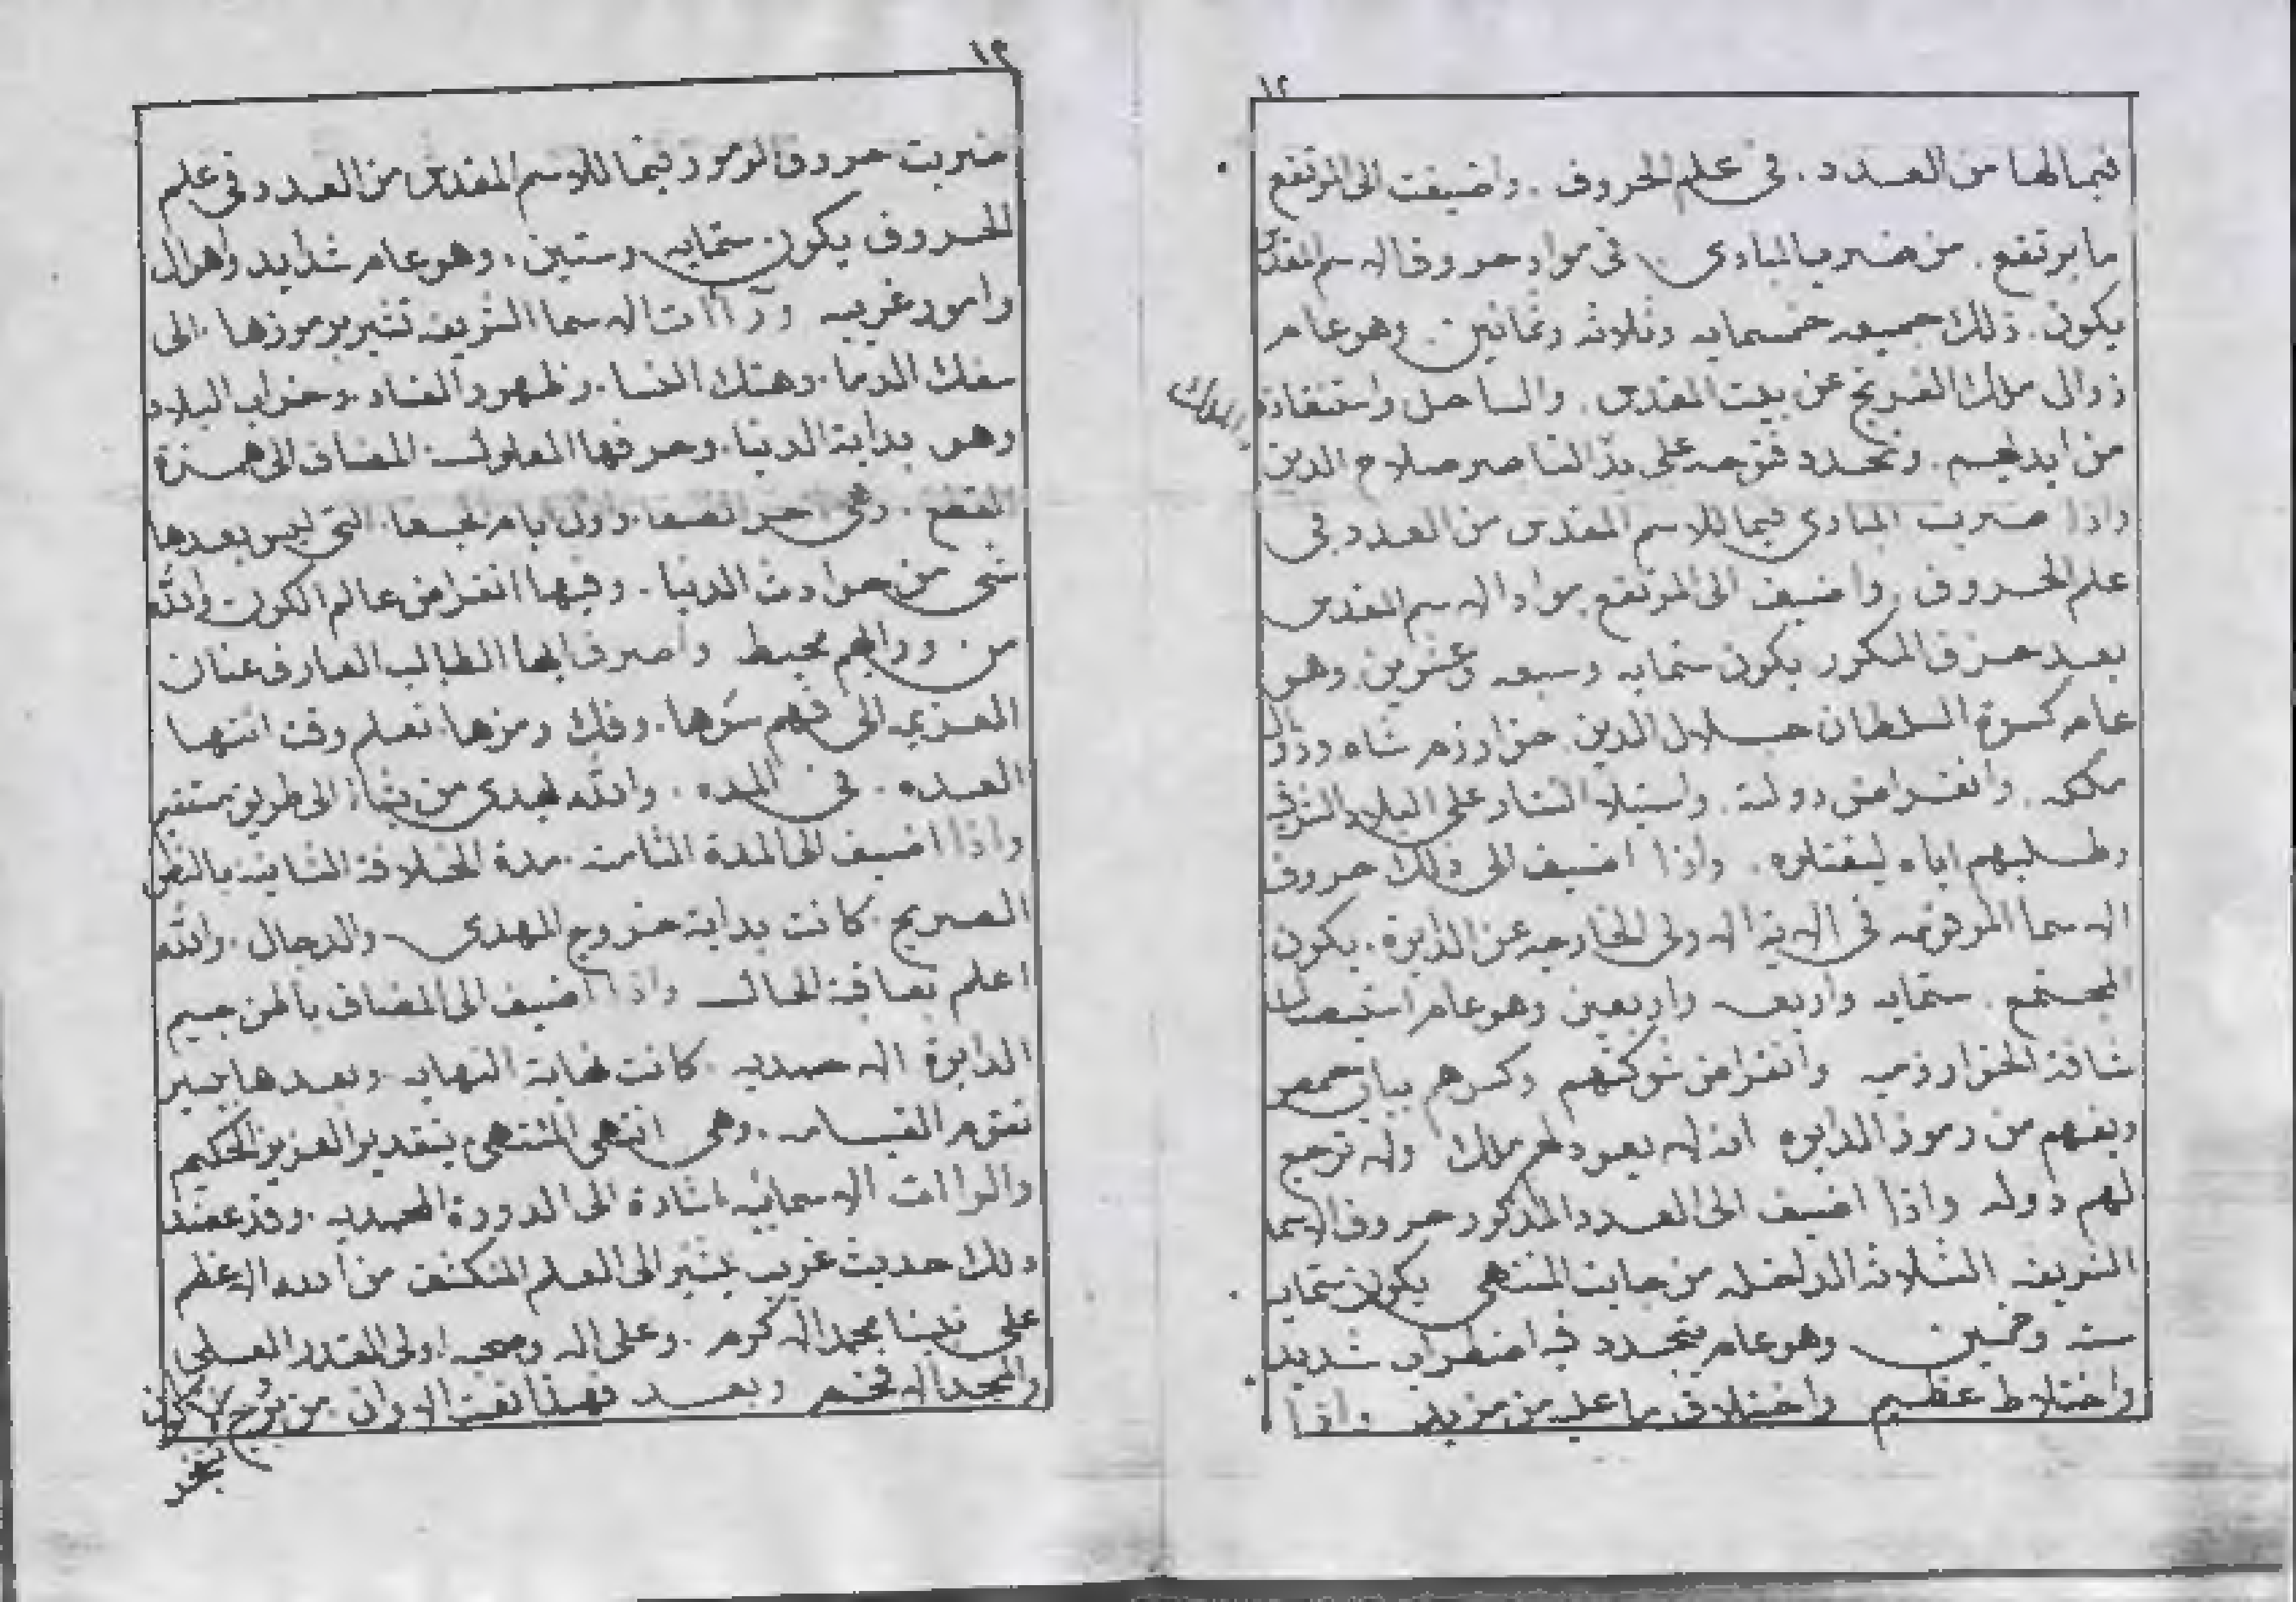 ١٢
فيما لها من العدد . في علم الحروف . واضيفت الى المرتفع
ما يرتفع . من ضرب المبادي . في مواد حروف الاسم المقدس
يكون . ذلك جميعه خمسمايه وثلاثه وثمانين . وهو عام
زوال ملك الفرنج عن بيت المقدس . والساحل واستنقاذه
والملوك
من ايديهم . وتجدد فتوحه على يد الناصر صلاح الدين
واذا ضربت المبادي فيما للاسم المقدس من العدد في
علم الحروف . واضيف الى المرتفع مواد الاسم المقدس
بعد حذف المكرر يكون ستمايه وسبعه وعشرين . وهو
عام كسرة السلطان جلال الدين خوارزم شاه وزوال
ملكه . وانقراض دولته . واستيلا التتار على البلاد الشرقيه
وطلبهم اياه ليقتلوه . واذا اضيف الى ذلك حروف
الاسما المرقومه في الاية الاولى الخارجه عن الدايرة . يكون
المجتمع . ستمايه واربعه واربعين وهو عام استيصال
شافة الخوارزميه وانقراض شوكتهم وكسرهم بباب حمص
ويفهم من رموز الدايره انه لا يعود لهم ملك ولا ترجع
لهم دوله واذا اضيف الى العدد المذكور حروف الاسما
الشريفه الثلاثه الداخله من جانب المنتهى يكون ستمايه
سته وخمسين وهو عام يتجدد فيه اضطراب شديد
واختلاط عظيم واختلاف ما عليه من مزيد . واذا
١٣
ضربت حروف الرموز فيما للاسم المقدس من العدد في علم
الحروف يكون ستمايه وستين . وهو عام شدايد واهوال
وامور غريبه ورآات الاسما الشريفه تشير برموزها الى
سفك الدما . وهتك النسا . وظهور الفساد . وخراب البلاد
وهي بداية الدنيا . وحرفها المعلول . المضاف الى همزة
القطع . وهي اخر القضا . واول ايام البقا . التي ليس بعدها
شي من حوادث الدنيا . وفيها انقراض عالم الكون والله
من ورايهم محيط واصرف ايها الطالب العارف عنان
العزيمه الى فهم سرها . وفك رمزها . تعلم وقت انتها
العده . في المده . والله يهدي من يشا الى طريق مستقيم
واذا اضيف الى المدة الثامنه . مدة الخلافة الثانيه بالنص
الصريح . كانت بداية خروج المهدي والدجال . والله
اعلم بعاقبة الحال واذا اضيف الى المضاف بالهن جيم
الدايرة الاحمديه . كانت نهاية النهايه . وبعدها بيسير
تقوم القيامه . وهي انتهى المنتهى بتقدير العزيز الحكيم
والراات الاسمائيه اشارة الى الدورة المحمديه . وقد عضد
ذلك حديث غريب يشير الى العلم المنكشف من
على نبينا محمد الاكرم . وعلى اله وصحبه اولى القدر العلي
والمجد الافخم وبعد فهذا نفت الاوان . من